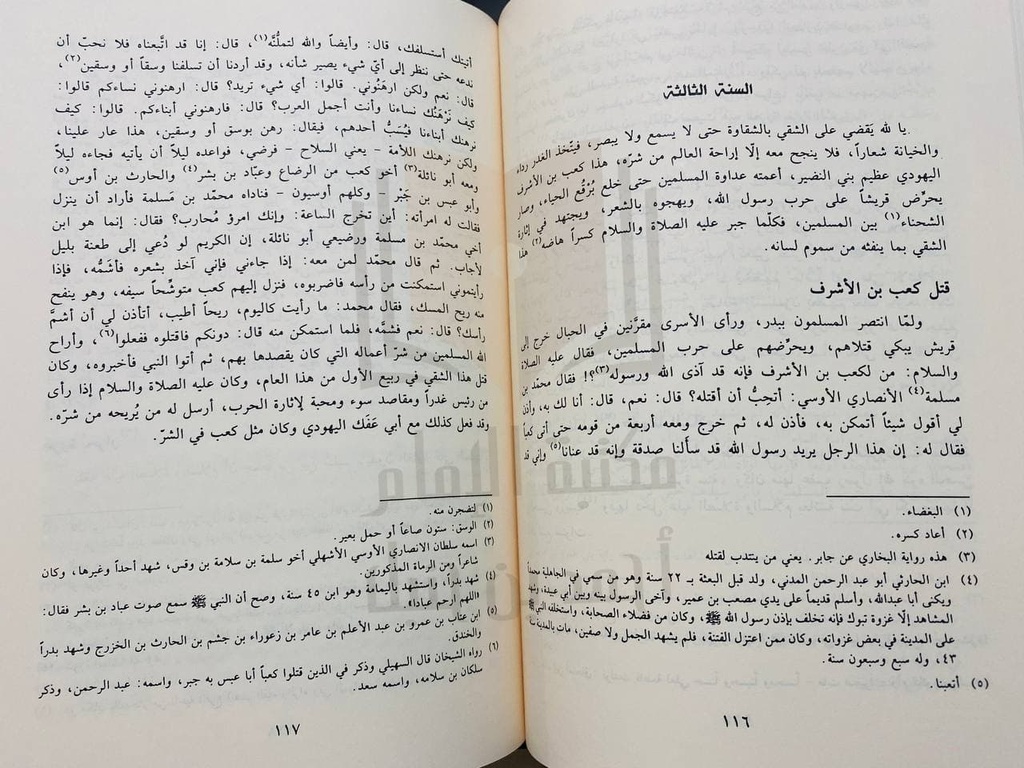 السنة الثالثة
يا لله يَقضي على الشقي بالشقاوة حتى لا يسمع ولا يبصر، فيتّخذ الغدر رداء
والخيانة شعاراً، فلا ينجح معه إلّا إراحة العالم من شرّه، هذا كعب بن الأشرف
اليهودي عظيم بني النضير، أعمته عداوة المسلمين حتى خلع بُرْقُع الحياء، وصار
يحرّض قريشاً على حرب رسول الله، ويهجوه بالشعر، ويجتهد في إثارة
الشحناء(١) بين المسلمين، فكلّما جبر عليه الصلاة والسلام كسراً هاضه(٢) هذا
الشقي بما ينفثه من سموم لسانه.
قتل كعب بن الأشرف
ولمّا انتصر المسلمون ببدر، ورأى الأسرى مقرَّنين في الحبال خرج إلى
قريش يبكي قتلاهم، ويحرّضهم على حرب المسلمين، فقال عليه الصلاة
والسلام: من لكعب بن الأشرف فإنه قد آذى الله ورسوله(٣)؟! فقال محمّد بن
مسلمة(٤) الأنصاري الأوسي: أتحِبُّ أن أقتله؟ قال: نعم، قال: أنا لك به، وأذن
لي أقول شيئاً أتمكن به، فأذن له، ثم خرج ومعه أربعة من قومه حتى أتى كعباً
فقال له: إن هذا الرجل يريد رسول الله قد سألنا صدقة وإنه قد عنانا(٥) وإني قد
(١) البغضاء.
(٢) أعاد كسره.
(٣) هذه رواية البخاري عن جابر. يعني من ينتدب لقتله
(٤) ابن الحارثي أبو عبد الرحمن المدني، ولد قبل البعثة بـ ٢٢ سنة وهو من سمي في الجاهلية محمداً
ويكنى أبا عبدالله، وأسلم قديماً على يدي مصعب بن عمير، وآخى الرسول بينه وبين أبي عبيدة، وشهد
المشاهد إلّا غزوة تبوك فإنه تخلف بإذن رسول الله ﷺ، وكان من فضلاء الصحابة، واستخلفه النبي ﷺ
على المدينة في بعض غزواته، وكان ممن اعتزل الفتنة، فلم يشهد الجمل ولا صفين، مات بالمدينة سنة
٤٣، وله سبع وسبعون سنة.
(٥) أتعبنا.
١١٦
أتيتك أستسلفك، قال: وأيضاً والله لتملُّنَّه(١)، قال: إنا قد اتَّبعناه فلا نحبّ أن
ندعه حتى ننظر إلى أيّ شيء يصير شأنه، وقد أردنا أن تسلفنا وسقاً أو وسقين(٢)،
قال: نعم ولكن ارهَنُوني. قالوا: أي شيء تريد؟ قال: ارهنوني نساءكم قالوا:
كيف نَرْهَنُك نساءنا وأنت أجمل العرب؟ قال: فارهنوني أبناءكم. قالوا: كيف
نرهنك أبناءنا فيُسَبُّ أحدهم، فيقال: رهن بوسق أو وسقين، هذا عار علينا،
ولكن نرهنك اللأمة - يعني السلاح - فرضي، فواعده ليلاً أن يأتيه فجاءه ليلاً
ومعه أبو نائلة(٣) أخو كعب من الرضاع وعبّاد بن بشر(٤) والحارث بن أوس(٥)
وأبو عبس بن جَبْر - وكلهم أوسيون - فناداه محمّد بن مَسلمة فأراد أن ينزل
فقالت له امرأته: أين تخرج الساعة؛ وإنك امرؤ مُحارب؟ فقال: إنما هو ابن
أخي محمّد بن مسلمة ورضيعي أبو نائلة، إن الكريم لو دُعي إلى طعنة بليل
لأجاب. ثم قال محمّد لمن معه: إذا جاءني فإني آخذ بشعره فأشَمُّه، فإذا
رأيتموني استمكنت من رأسه فاضربوه، فنزل إليهم كعب متوشّحاً سيفه، وهو ينفح
منه ريح المسك، فقال محمد: ما رأيت كاليوم، ريحاً أطيب، أتاذن لي أن أشمَّ
رأسك؟ قال: نعم فشمَّه، فلما استمكن منه قال: دونكم فاقتلوه ففعلوا(٦)، وأراح
الله المسلمين من شرّ أعماله التي كان يقصدها بهم، ثم أتوا النبي فأخبروه، وكان
قتل هذا الشقي في ربيع الأول من هذا العام، وكان عليه الصلاة والسلام إذا رأى
من رئيس غدراً ومقاصد سوء ومحبة لإثارة الحرب، أرسل له من يُريحه من شرّه.
وقد فعل كذلك مع أبي عَفَك اليهودي وكان مثل كعب في الشرّ.
(١) لتضجرن منه.
(٢) الوسق: ستون صاعاً أو حمل بعير.
(٣) اسمه سلطان الانصاري الأوسي الأشهلي أخو سلمة بن سلامة بن وقس، شهد أحداً وغيرها، وكان
شاعراً ومن الرماة المذكورين.
(٤) شهد بدراً، واستشهد باليمامة وهو ابن ٤٥ سنة، وصح أن النبي ﷺ سمع صوت عباد بن بشر فقال:
«اللهم ارحم عبادا».
(٥) ابن عتاب بن عمرو بن عبد الأعلم بن عامر بن زعوراء بن جشم بن الحارث بن الخزرج وشهد بدراً
والخندق.
(٦) رواه الشيخان قال السهيلي وذكر في الذين قتلوا كعباً أبا عبس به جبر، واسمه: عبد الرحمن، وذكر
سلكان بن سلامه، واسمه سعد.
١١٧